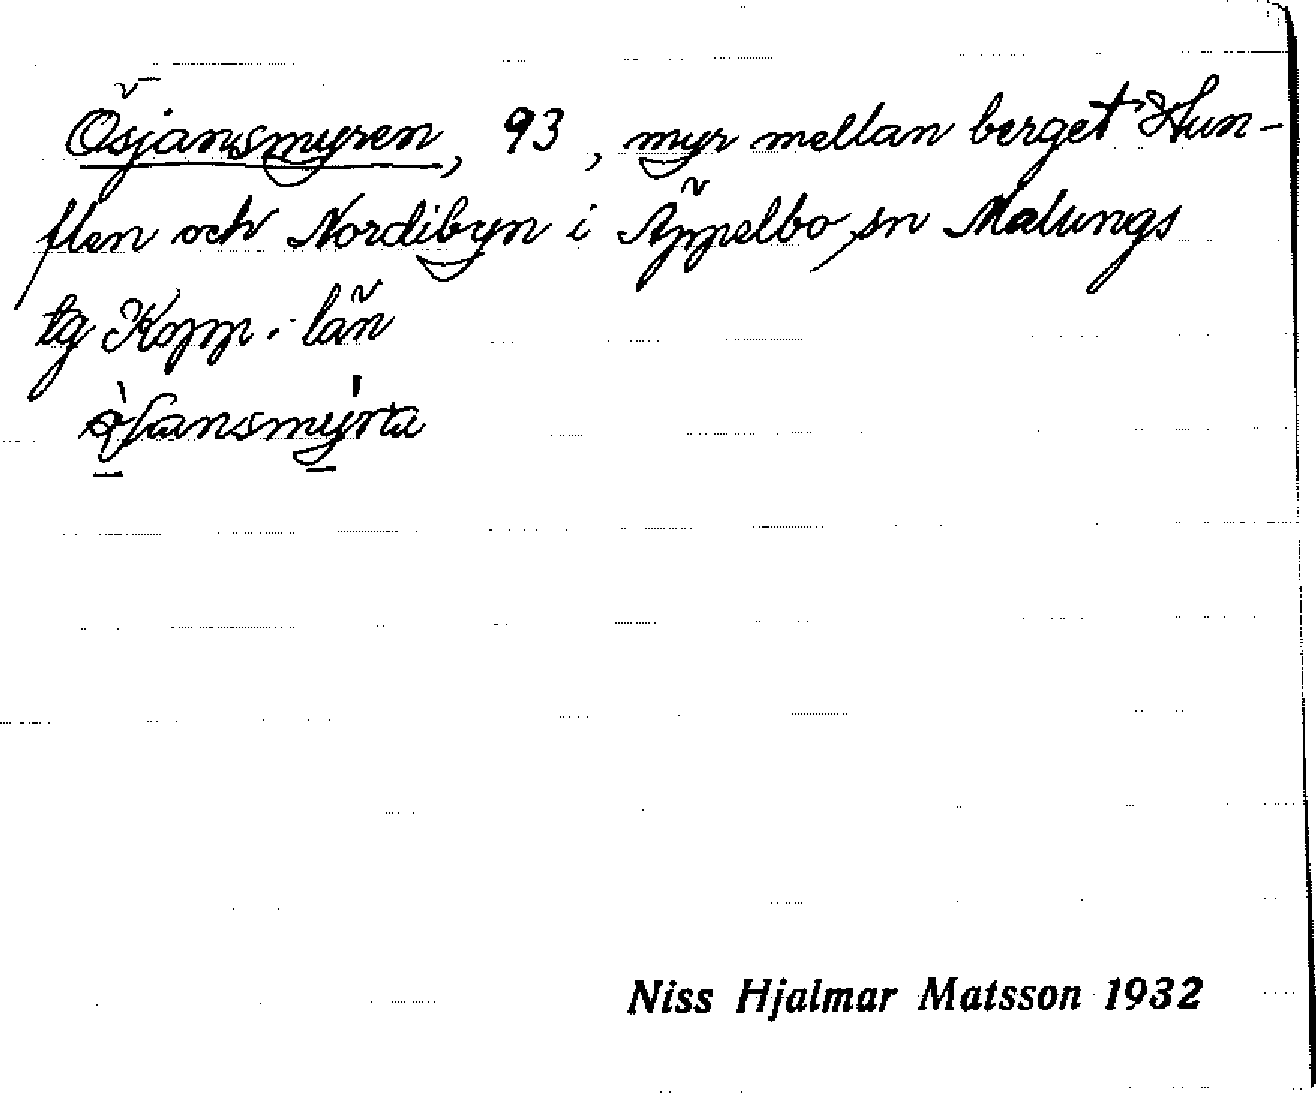 Ösjansmyren, 93, myr mellan berget Hun-
flen och Nordibyn i Äppelbo sn Malungs
tg Kopp. län
Niss Hjalmar Matsson 1932